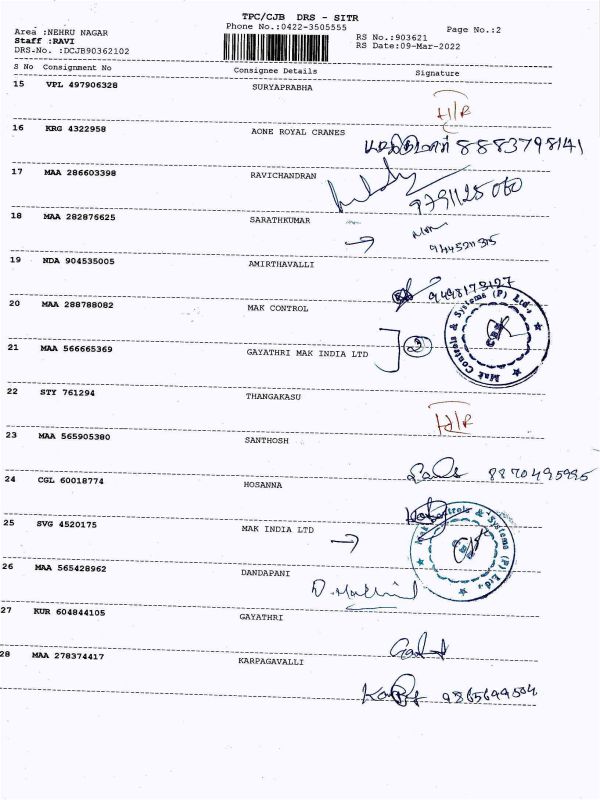 TPC/CJB DRS - SITR
Phone No.:0422-3505555
Page No.:2
Area :NEHRU NAGAR
Staff :RAVI
DRS-No. :DCJB90362102
RS No.:903621
RS Date:09-Mar-2022
S No Consignment No Consignee Details Signature
15 VPL 497906328 SURYAPRABHA
H/R
16 KRG 4322958 AONE ROYAL CRANES
8883798141
17 MAA 286603398 RAVICHANDRAN
18 MAA 282876625 SARATHKUMAR
19 NDA 904535005 AMIRTHAVALLI
20 MAA 288788082 MAK CONTROL
Mak Controls & Systems (P) Ltd.,
21 MAA 566665369 GAYATHRI MAK INDIA LTD
22 STY 761294 THANGAKASU
H/R
23 MAA 565905380 SANTHOSH
8870495995
24 CGL 60018774 HOSANNA
25 SVG 4520175 MAK INDIA LTD
Mak Controls & Systems (P) Ltd.,
26 MAA 565428962 DANDAPANI
27 KUR 604844105 GAYATHRI
28 MAA 278374417 KARPAGAVALLI